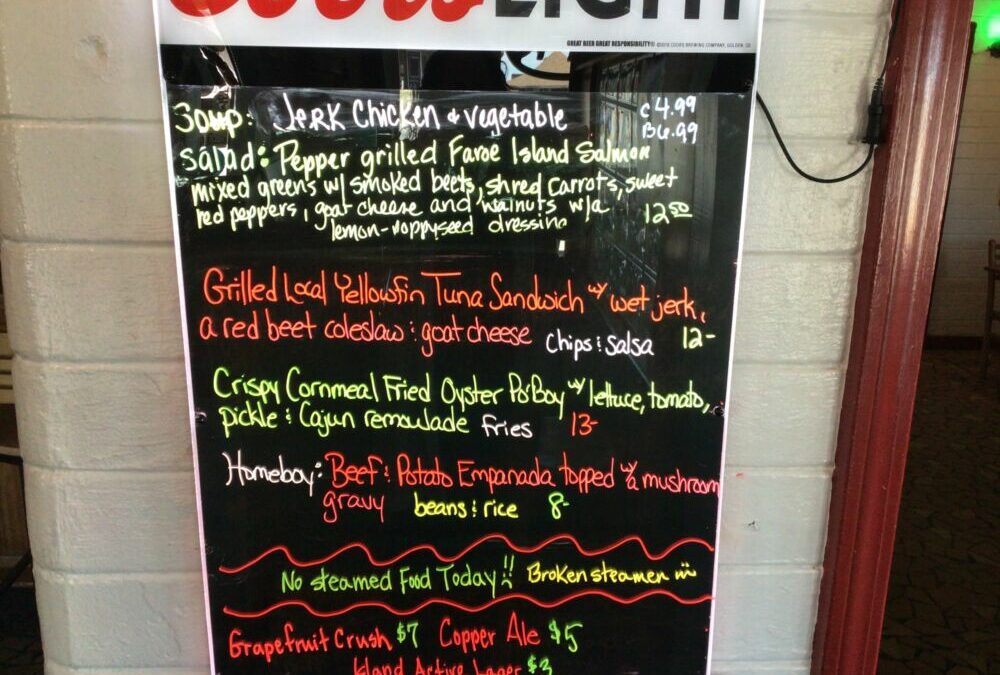 Coors LIGHT
GREAT BEER GREAT RESPONSIBILITY® ©2010 COORS BREWING COMPANY, GOLDEN, CO
Soup: Jerk Chicken & vegetable C 4.99
B 6.99
Salad: Pepper grilled Faroe Island Salmon
mixed greens w/ smoked beets, shred carrots, sweet
red peppers, goat cheese and walnuts w/a 12.50
lemon-poppyseed dressing
Grilled Local Yellowfin Tuna Sandwich w/ wet jerk,
a red beet coleslaw & goat cheese Chips & Salsa 12-
Crispy Cornmeal Fried Oyster Po'Boy w/ lettuce, tomato,
pickle & Cajun remoulade fries 13-
Homeboy: Beef & Potato Empanada topped w/a mushroom
gravy beans & rice 8-
No steamed Food Today!! Broken steamer
Grapefruit Crush $7 Copper Ale $5
Island Active Lager $3